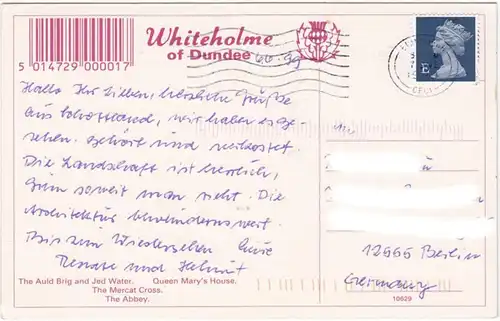 Whiteholme
of Dundee
5 014729 000017
99
E
Hallo Ihr Lieben, herzliche Grüße
aus Schottland, wir haben es ge-
sehen, gehört und verkostet.
Die Landschaft ist herrlich,
Grün soweit man sieht. Die
Architektur bewundernswert.
Bis zum Wiedersehen Eure
Renate und Helmut
An
12555 Berlin
Germany
The Auld Brig and Jed Water. Queen Mary's House.
The Mercat Cross.
The Abbey.
10629